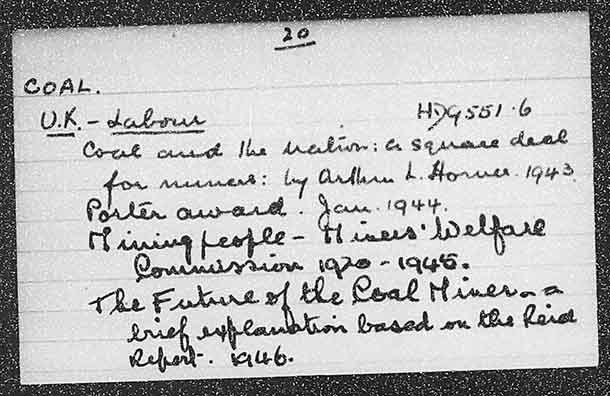 20
COAL.
U.K. - Labour HD9551.6
Coal and the nation: a square deal
for miners: by Arthur L. Horner. 1943.
Porter award. Jan. 1944.
Mining people - Miners' Welfare
Commission 1920 - 1945.
The Future of the Coal Miner - a
brief explanation based on the Reid
Report. 1946.